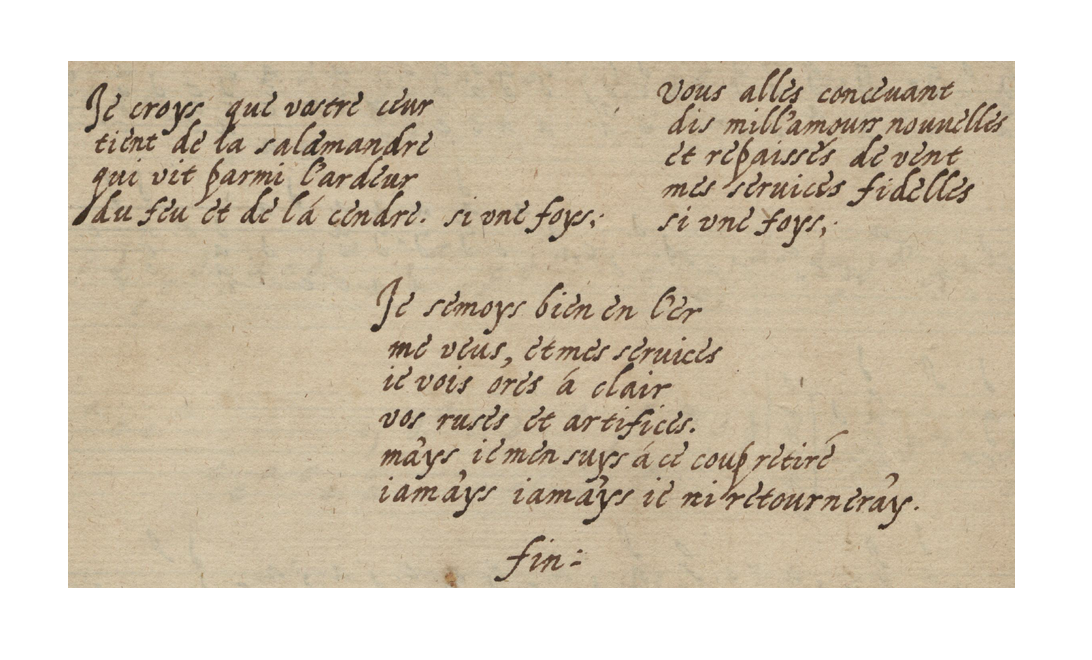 Je croys que vostre ceur
tient de la salamandre
qui vit parmi l'ardeur
du feu et de lá cendre. si vne foys;
Vous allés conceuant
dis mill'amours nouuelles
et repaisses de vent
mes seruices fidelles
si vne foys;
Je semoys bien en l'er
me veus, et mes seruices
ie vois óres á clair
vos ruses et artifices.
mays ie men suys á ce coup retiré
iamays iamays ie ni retourneray.
fin: